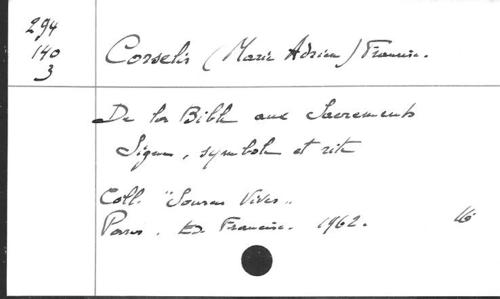 294
140
3
Corselis (Marie Adrien) Francis.
De la Bible aux Sacrements
Signes, symbole et rite
Coll. "Sources Vives"
Paris. Ed Francisc. 1962. 16